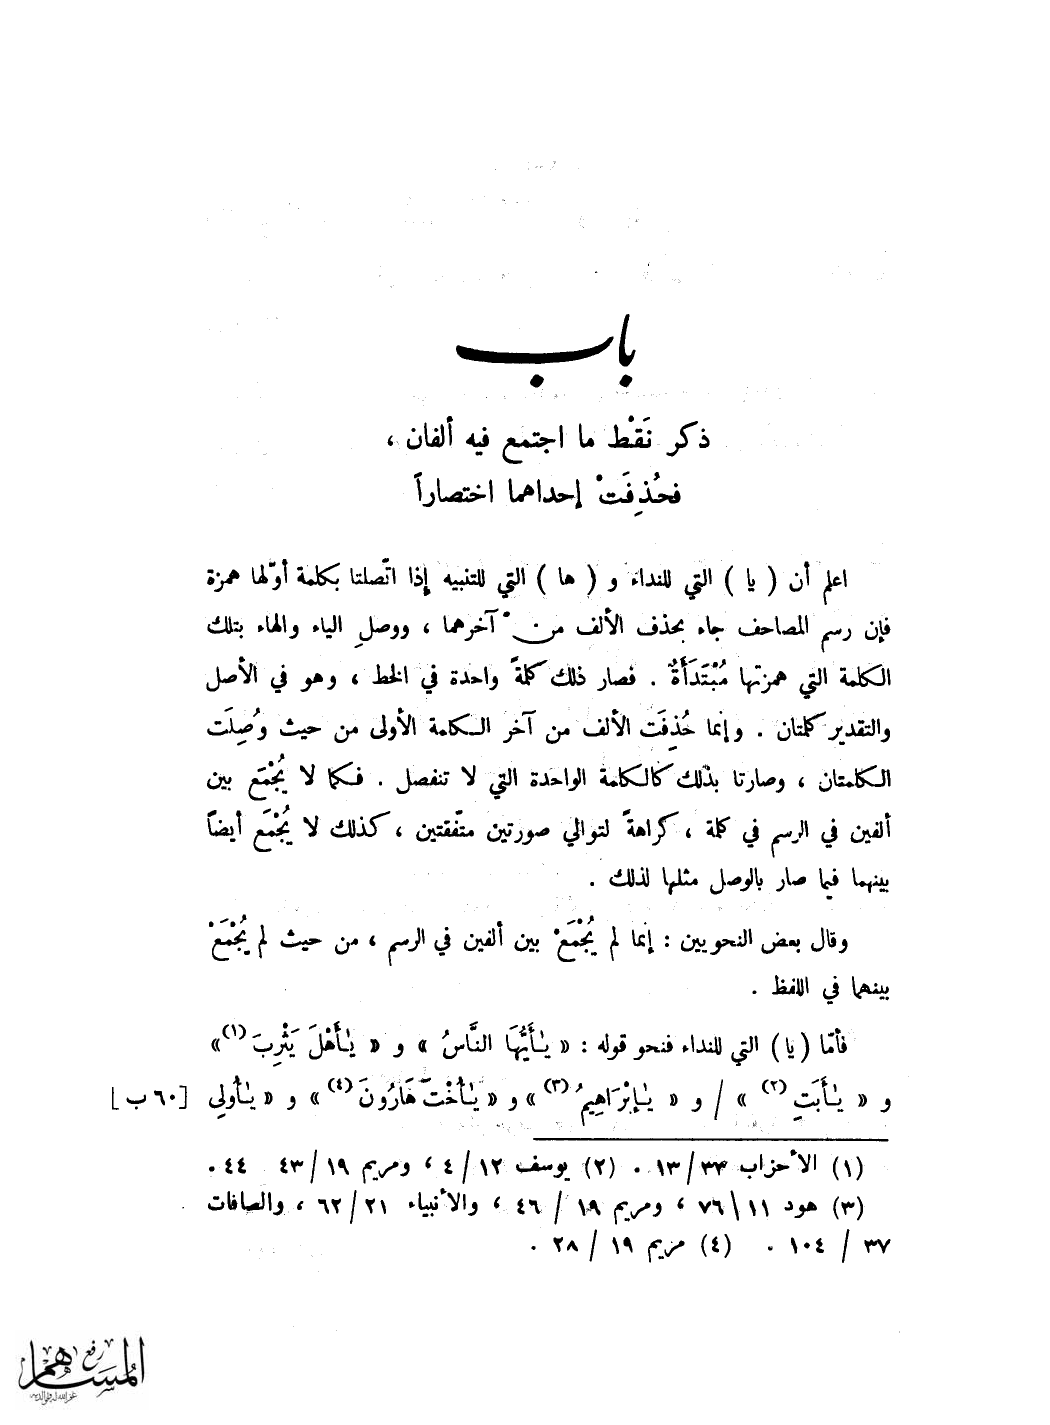 باب
ذكر نَقْط ما اجتمع فيه ألفان ،
فحُذِفَتْ إحداهما اختصاراً
اعلم أن ( يا ) التي للنداء و ( ها ) التي للتنبيه إذا اتّصلتا بكلمة أوّلها همزة
فإن رسم المصاحف جاء بحذف الألف منْ آخرهما ، ووصلِ الياء والهاء بتلك
الكلمة التي همزتها مُبْتَدَأَةٌ . فصار ذلك كلمةً واحدة في الخط ، وهو في الأصل
والتقدير كلمتان . وإنما حُذِفَت الألف من آخر الكلمة الأولى من حيث وُصِلَت
الكلمتان ، وصارتا بذلك كالكلمة الواحدة التي لا تنفصل . فكما لا يُجْمَع بين
ألفين في الرسم في كلمة ، كراهةً لتوالي صورتين متّفقتين ، كذلك لا يُجْمَع أيضاً
بينهما فيما صار بالوصل مثلها لذلك .
وقال بعض النحويين : إنما لم يُجْمَعْ بين ألفين في الرسم ، من حيث لم يُجْمَعْ
بينهما في اللفظ .
فأمّا (يا) التي للنداء فنحو قوله : « يٰأَيُّهَا النَّاسُ » و « يٰأَهْلَ يَثْرِبَ (١) »
و « يٰأَبَتِ (٢) » / و « يٰإِبْرَاهِيمُ (٣) » و « يٰأُخْتَ هَارُونَ (٤) » و « يٰأُولِي [٦٠ ب]
(١) الأحزاب ٣٣/ ١٣ . (٢) يوسف ١٢/ ٤ ، ومريم ١٩/ ٤٣ ٤٤ .
(٣) هود ١١\ ٧٦ ، ومريم ١٩ / ٤٦ ، والأنبياء ٢١/ ٦٢ ، والصافات
٣٧ / ١٠٤ . (٤) مريم ١٩ / ٢٨ .
رفع
المساهم